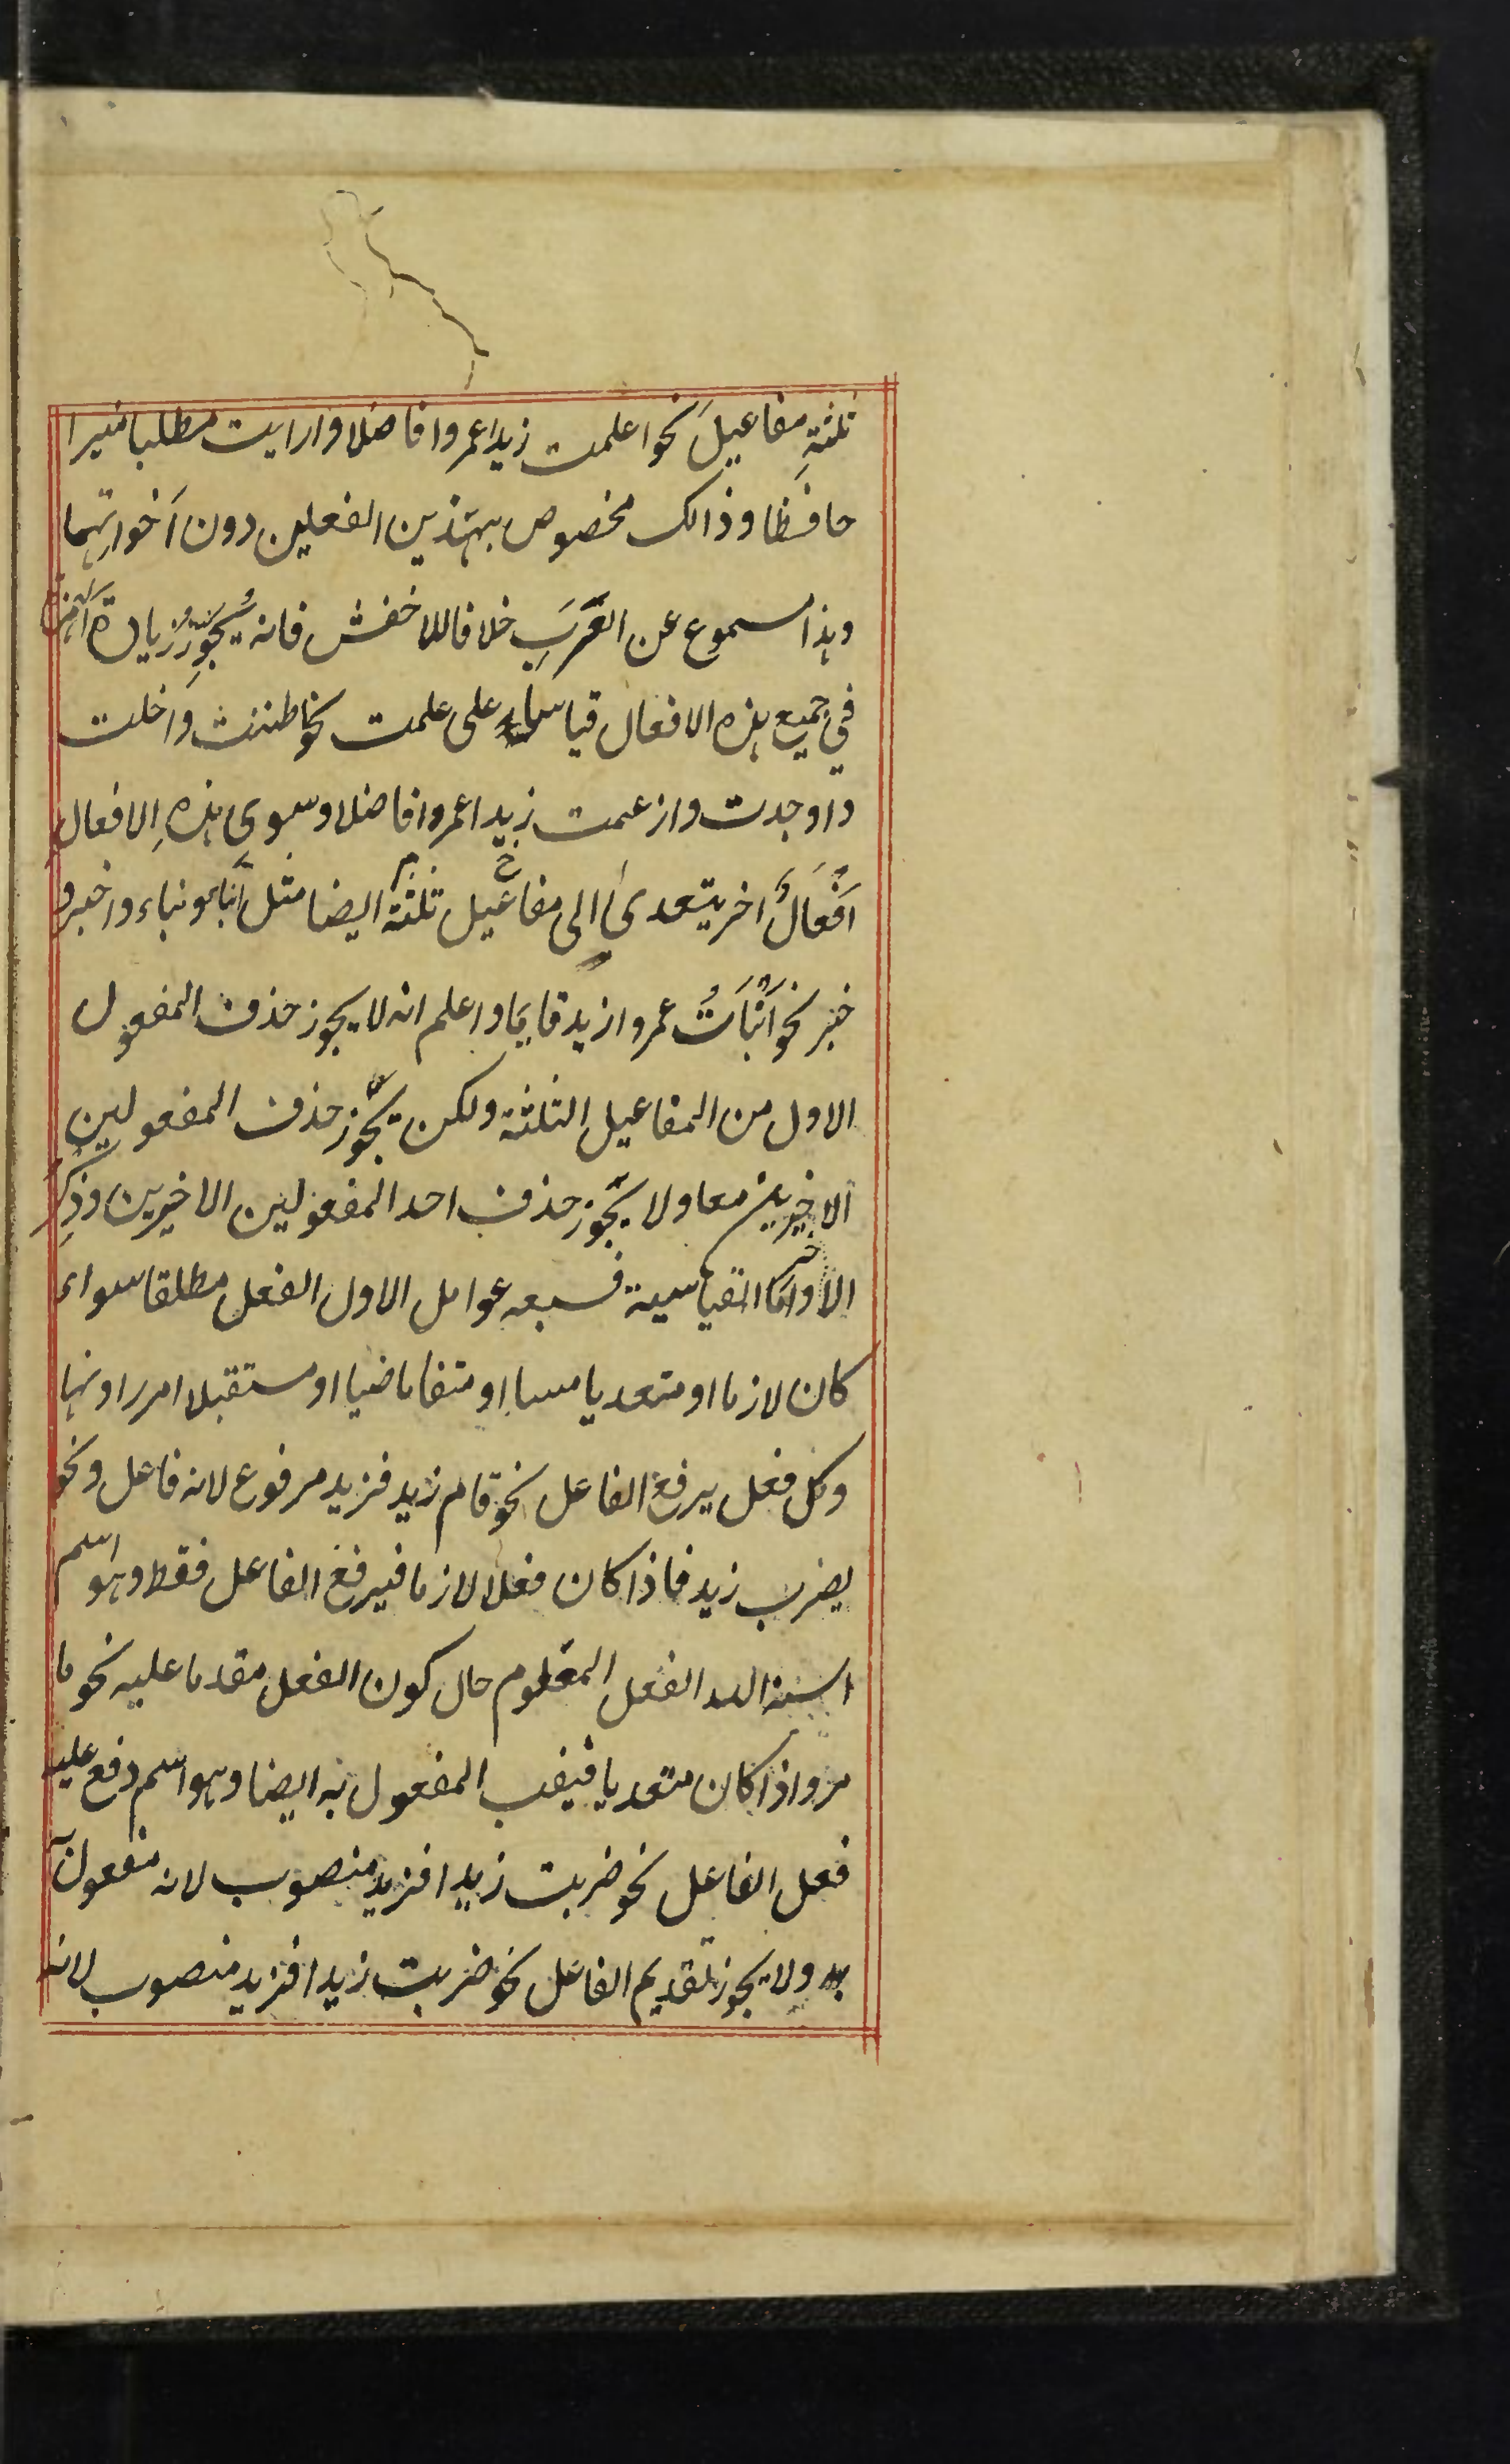 ثلثةِ مفاعيلَ نحو اعلمت زيدا عمروا فاضلا وارايت مطلبا منيرا
حافظا وذالك مخصوص بهذين الفعلين دون اَخواتِهما
وهذا مسموع عن العَرَبِ خلافا للاخفش فانه يُجَوِّزُ زيادة
في جميع هذه الافعال قياسا على علمت نحو اظننت واخلت
واوجدت وازعمت زيدا عمروا فاضلا وسوى هذهِ الافعال
اَفْعَالٌ اخر يتعدى الى مفاعيل ثلثة ايضا مثل انباء ونباء واخبر و
خبر نحو اَنْبَاَتُ عمروا زيد قايما واعلم انه لا يجوز حذف المفعول
الاول من المفاعيل الثلثة ولكن يجوز حذف المفعولين
الاخيرين معا ولا يجوز حذف احد المفعولين الاخيرين وذِكر
الاخر واما القياسية فسبعه عوامل الاول الفعل مطلقا سواء
كان لازما او متعديا او ماضيا او مستقبلا امرا او نهيا
وكل فعل يرفع الفاعل نحو قام زيد فزيد مرفوع لانه فاعل ونحو
يضرب زيد فاذا كان فعلا لازما فيرفع الفاعل فقط وهو اسم
اسند اليه الفعل المعلوم حال كون الفعل مقدما عليه نحو ما
مر واذا كان متعديا فينصب المفعول به ايضا وهو اسم وقع عليه
فعل الفاعل نحو ضربت زيدا فزيد منصوب لانه مفعول
به ولا يجوز تقديم الفاعل نحو ضربت زيدا فزيد منصوب لانه